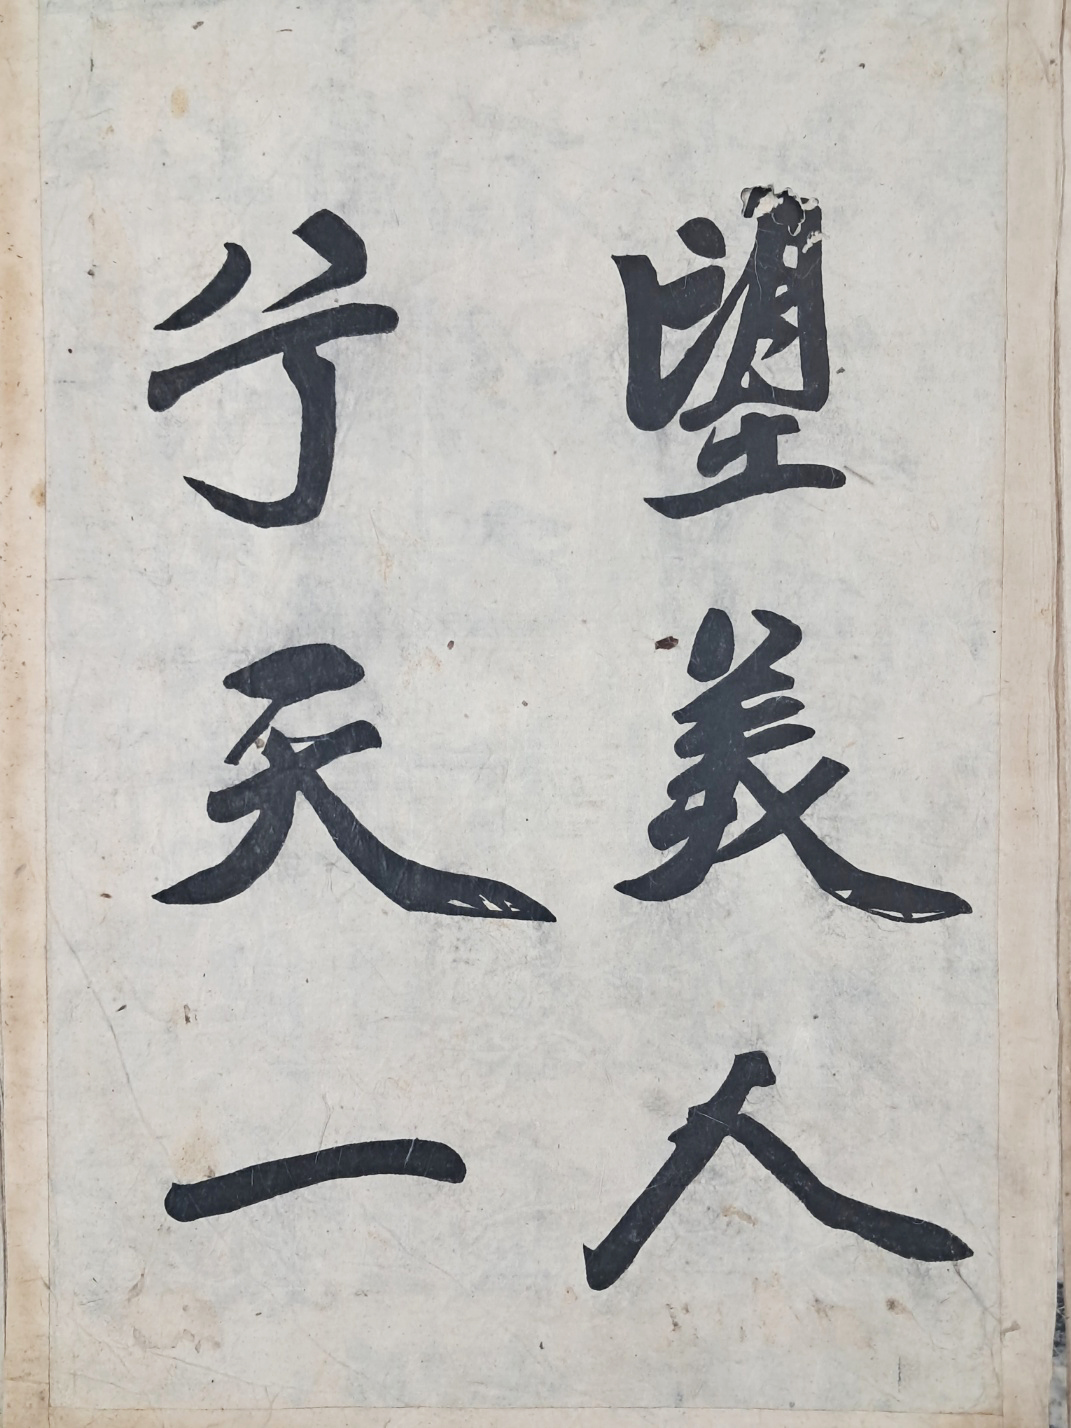 望美人
兮天一